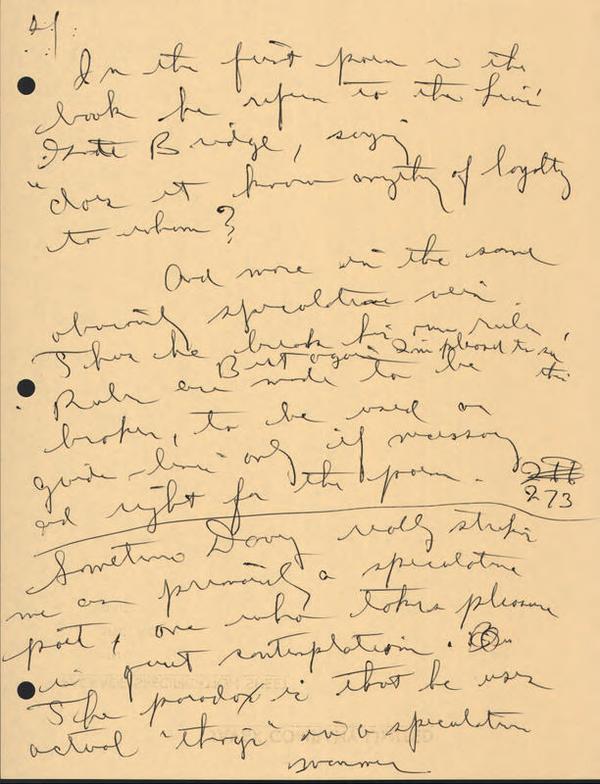 4/
In the first poem in the
book he refers to the
Bridge, saying
"does it know anything of loyalty
to whom?
And more in the same
obviously speculative vein.
Thus he breaks his own rules,
But again I'm pleased to see this
Rules are made to be
broken, to be used as
guide-lines only if necessary
and right for the poem.
273
Sometimes Davey really strikes
me as primarily a speculative
poet, one who takes pleasure
in quiet contemplation.
The paradox is that he uses
actual "things" in a speculative
manner